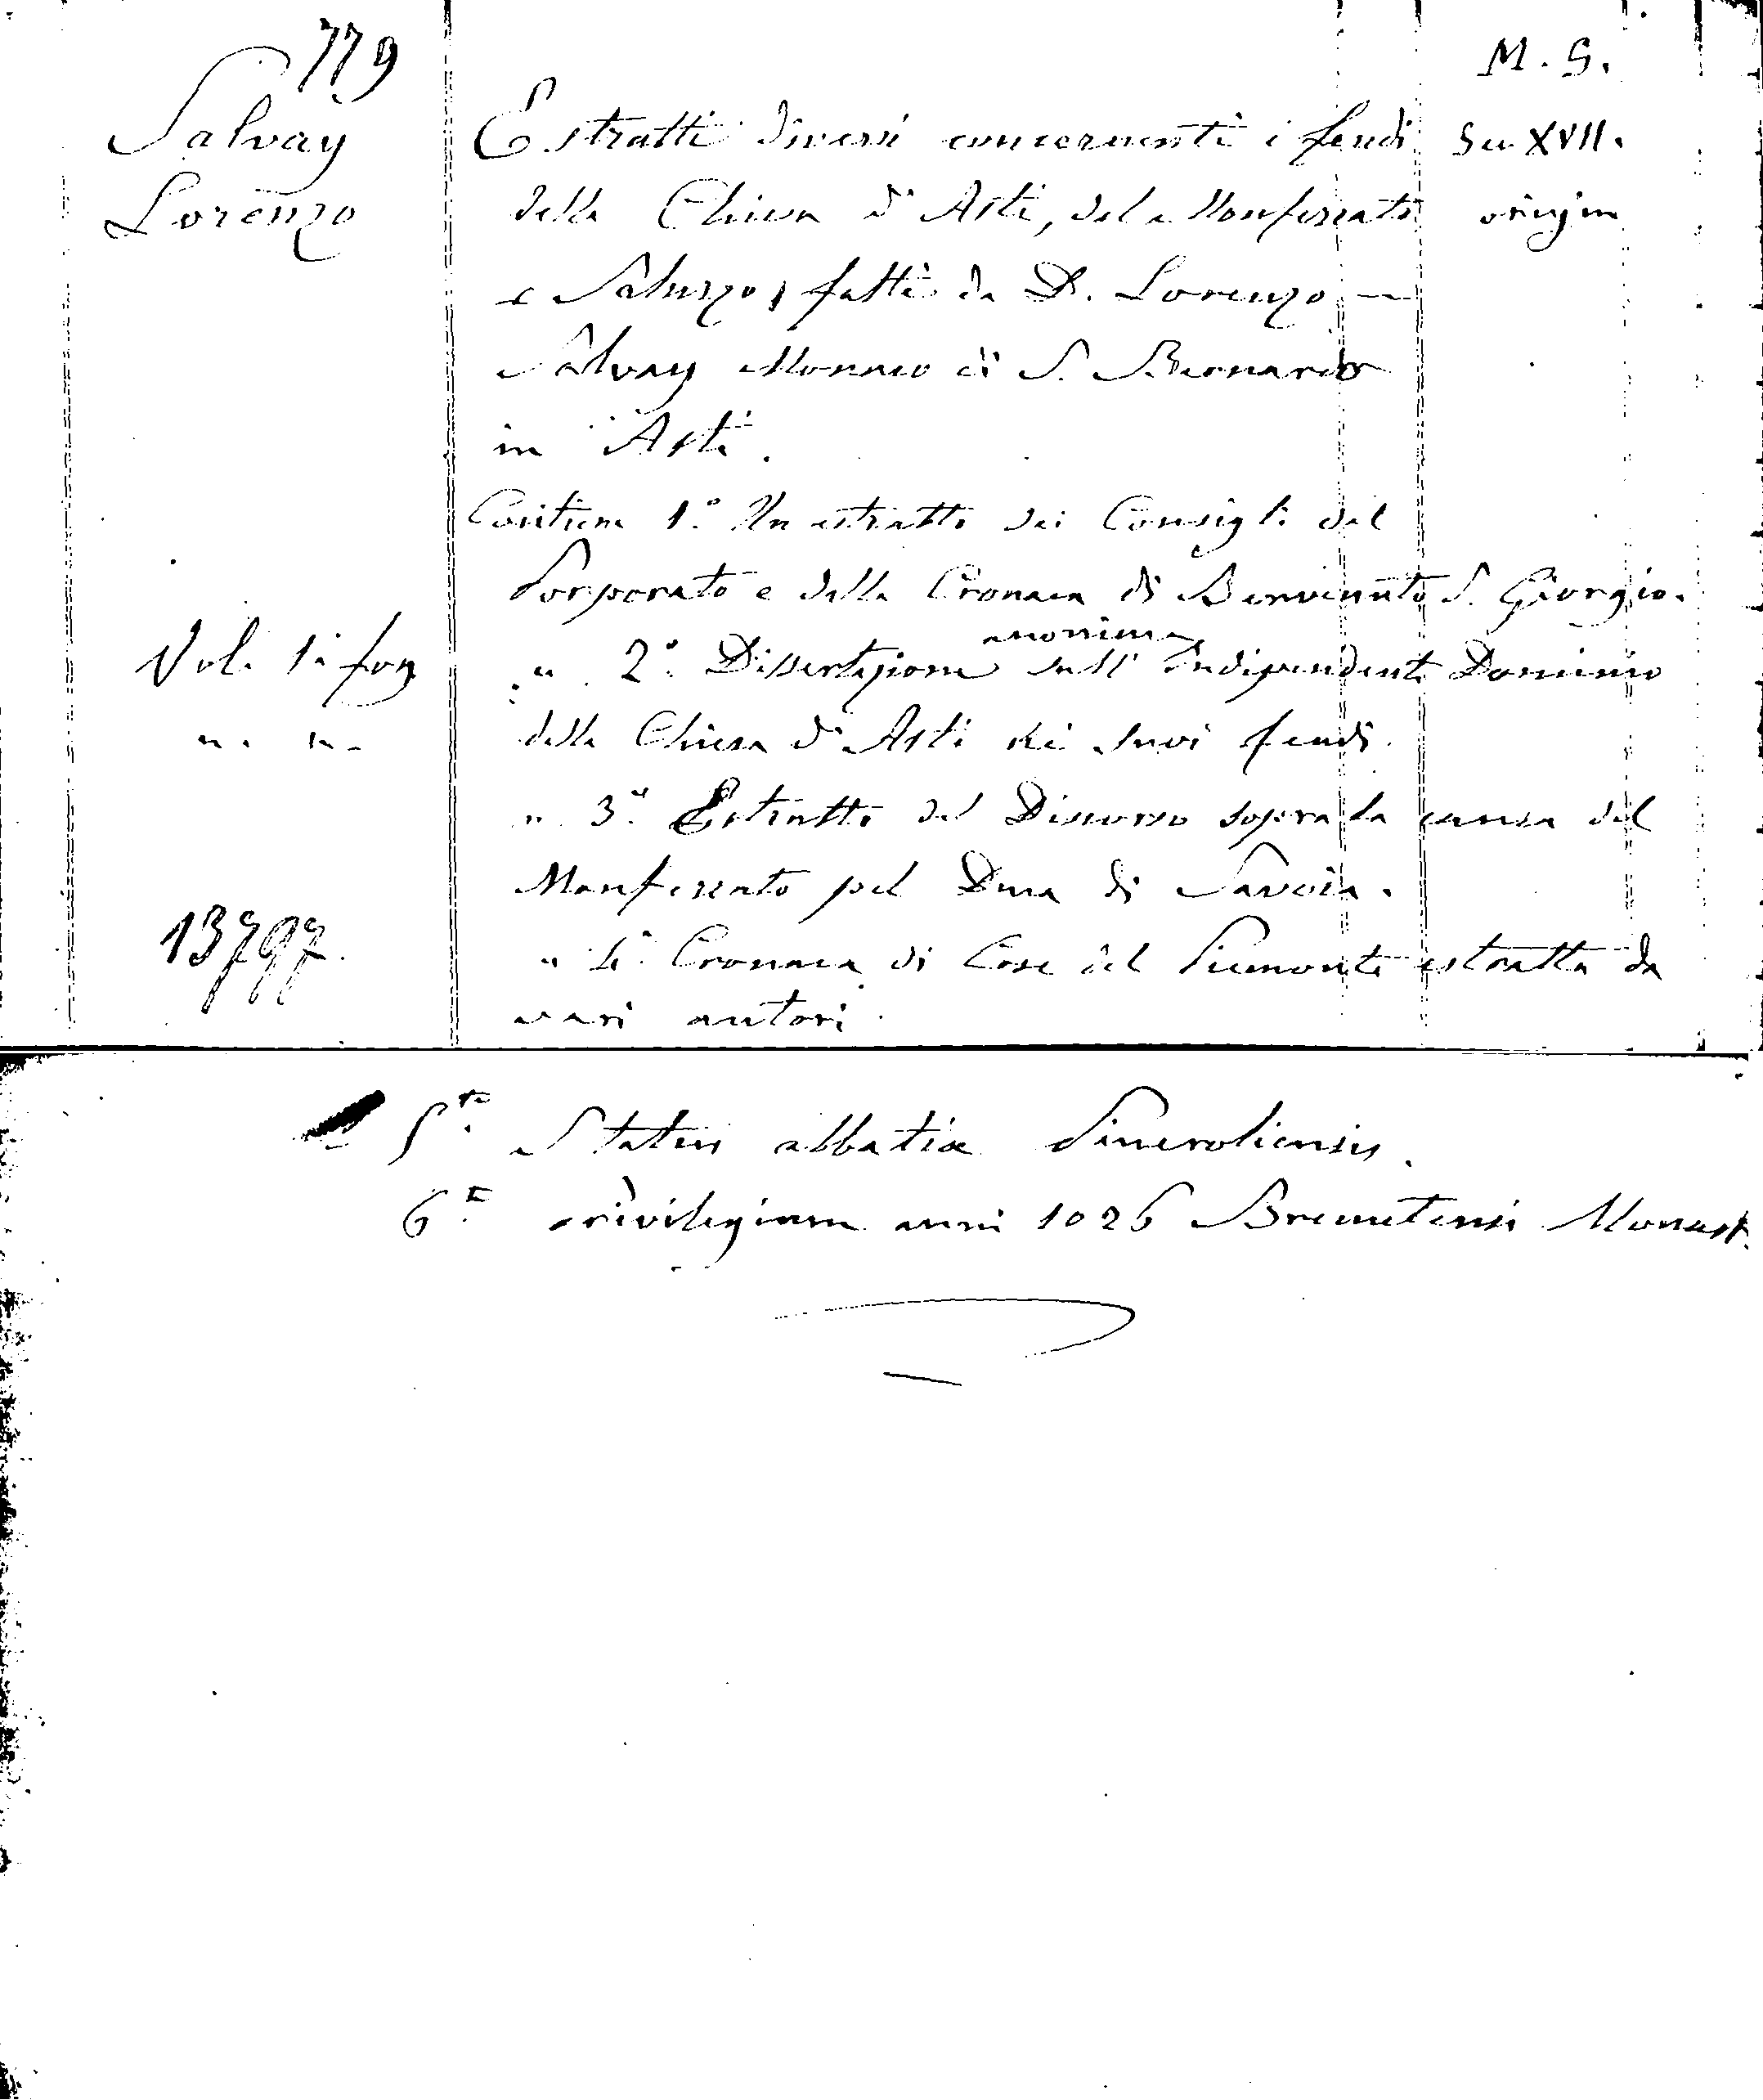 779
M. S.
Salvay
Lorenzo
Estratti diversi concernenti i feudi
Sec XVII.
della Chiesa d'Asti, del Monferrato
origin
e Saluzzo, fatti da D. Lorenzo —
Salvay Monaco di S. Bernardo
in Asti.
Contiene 1.° Un estratto dei Consigli del
Porporato e della Cronaca di Benvenuto S. Giorgio.
Vol. 1 in fog
" 2.° Dissertazione anonima sull' indipendente Dominio
della Chiesa d'Asti dei suoi feudi.
" 3.° Estratto del Discorso sopra la causa del
Monferrato pel Duca di Savoia.
13797.
" 4.° Cronaca di Cose del Piemonte estratta da
vari autori.
5.to Status abbatiæ Pineroliensis.
6.to Privilegium anni 1026 Bremetensis Monast.